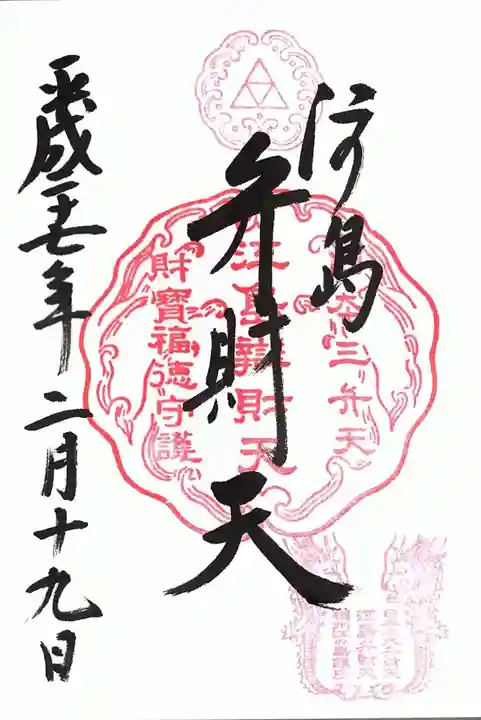 江島
弁財天
平成二十七年二月十九日
日本三弁天
江島辨財天
財寶福徳守護